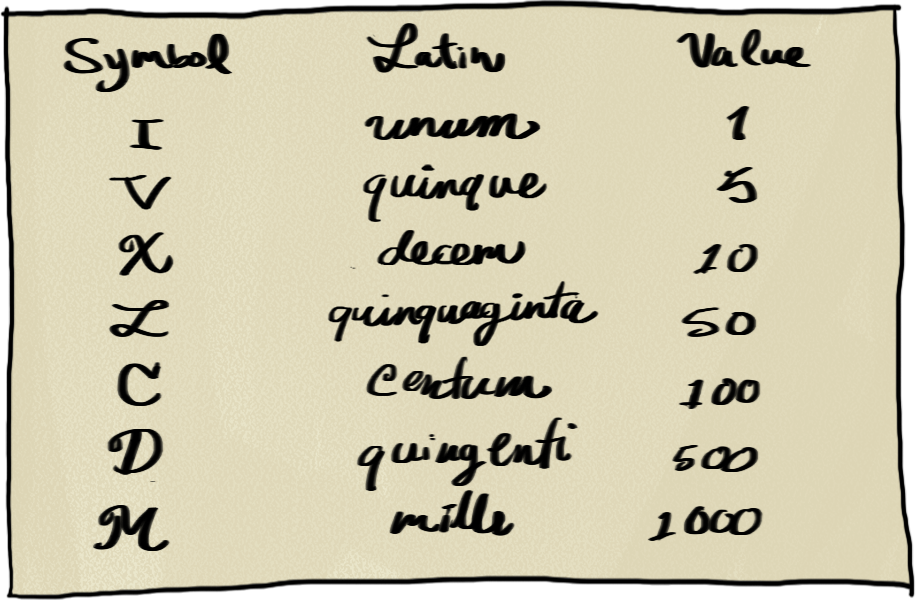 Symbol Latin Value
I unum 1
V quinque 5
X decem 10
L quinquaginta 50
C Centum 100
D quingenti 500
M mille 1000